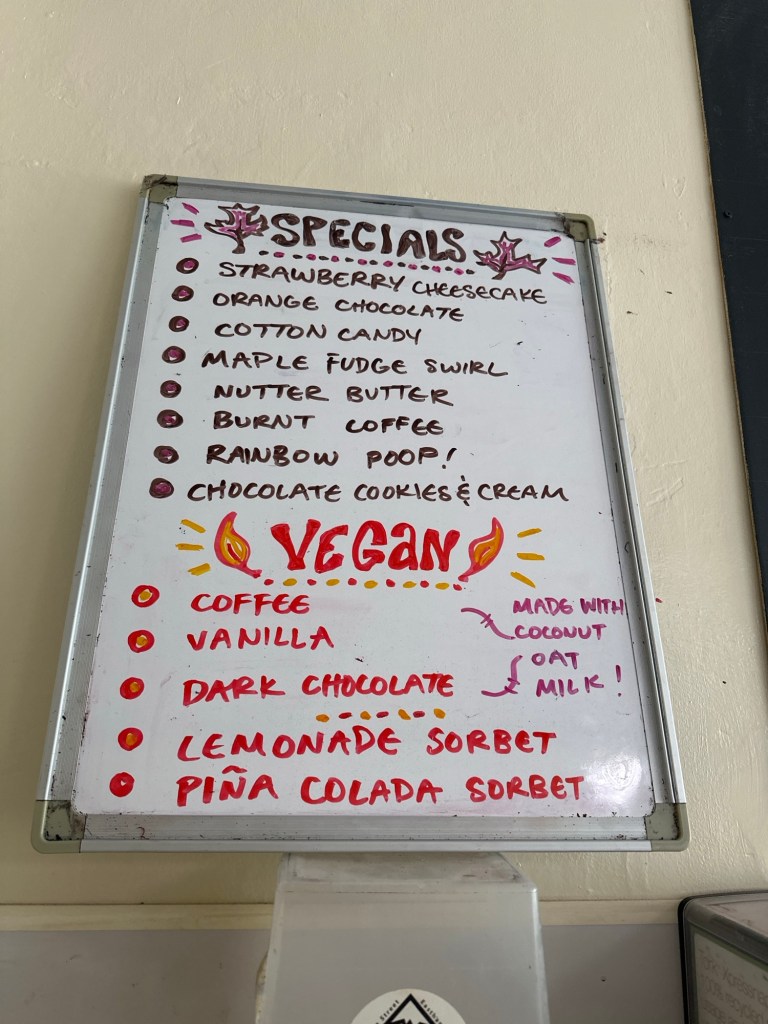 SPECIALS
STRAWBERRY CHEESECAKE
ORANGE CHOCOLATE
COTTON CANDY
MAPLE FUDGE SWIRL
NUTTER BUTTER
BURNT COFFEE
RAINBOW POOP!
CHOCOLATE COOKIES & CREAM
VEGAN
COFFEE
VANILLA
DARK CHOCOLATE
MADE WITH
COCONUT
OAT
MILK!
LEMONADE SORBET
PIÑA COLADA SORBET
Street